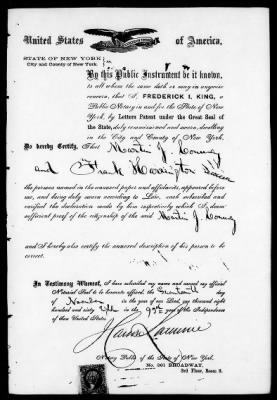 United States of America.
STATE OF NEW YORK
City and County of New York.
By this Public Instrument be it known,
to all whom the same doth or may in anywise
concern, that I, FREDERICK I. KING, a
Public Notary in and for the State of New
York, by Letters Patent under the Great Seal of
the State, duly commissioned and sworn, dwelling
in the City and County of New York.
Do hereby Certify, That Martin J.
and Frank Harrington
the persons named in the annexed paper and affidavits, appeared before
me, and being duly sworn according to Law, each subscribed and
verified the declaration made by him respectively which I deem
sufficient proof of the citizenship of the said Martin J.
and I hereby also certify the annexed description of his person to be
correct.
In Testimony Whereof, I have subscribed my name and caused my official
Notarial Seal to be hereunto affixed, the day
of in the year of our Lord, one thousand eight hundred
and sixty in the of the Independence
of these United States.
Notary Public of the State of New York.
No. 261 BROADWAY,
3rd Floor, Room 9.